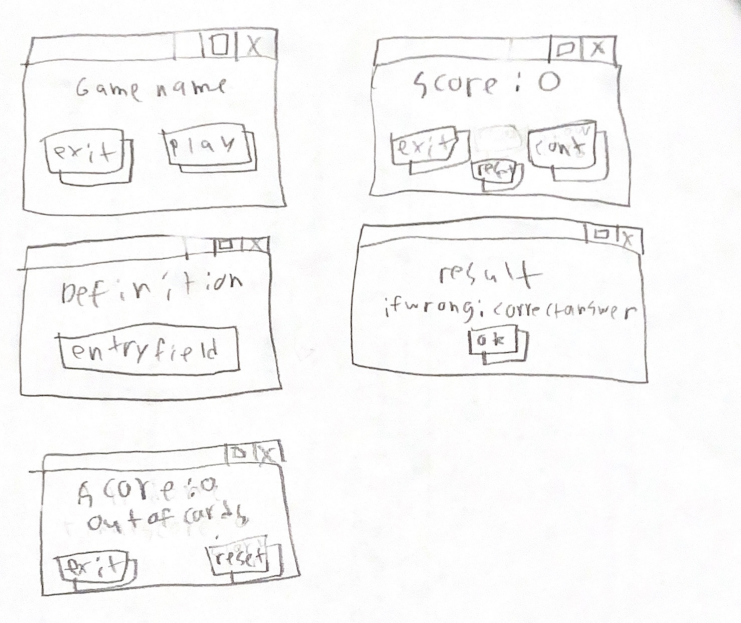 X
Game name
exit play
X
Score : 0
exit cont
reset
X
Definition
entryfield
X
result
ifwrong: correctanswer
ok
X
Score : 0
out of cards
exit reset